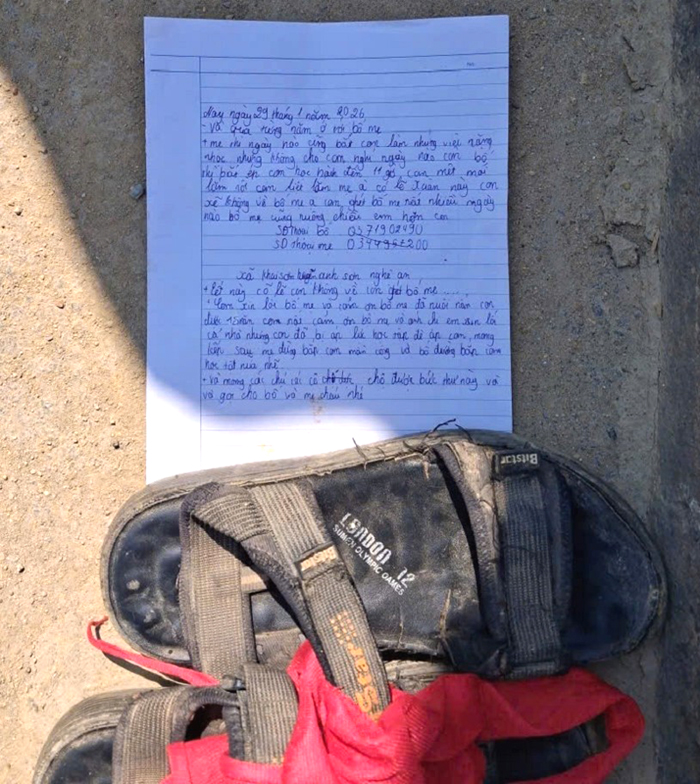 Nay ngày 29 tháng 1 năm 2026
- Và quả ... năm ở với bố mẹ
+ mẹ thì ngày nào cũng bắt con làm những việc nặng
nhọc nhưng không cho con nghỉ ngày nào con bố
thì bắt ép con học hành đến 11 giờ con mệt mỏi
lắm rồi con biết lắm mẹ ạ có lẽ xuân này con
sẽ không về bố mẹ ạ con ghét bố mẹ rất nhiều ngày
nào bố mẹ cũng nuông chiều em hơn con
SĐThoại bố 0371902490
SĐThoại mẹ 200
xã Khai sơn huyện anh sơn nghệ an
+ tết này có lẽ con không về con ghét bố mẹ ....
+ Con xin lỗi bố mẹ và cảm ơn bố mẹ đã nuôi nấng con
được năm cảm ơn bố mẹ và anh chị em xin lỗi
cả nhà nhưng con đã bị áp lực học tập đè áp con mong
lần sau mẹ đừng bắt con làm và bố đường bắt con
học tốt nữa nhé
+ và mong các chú các cô thấy được bức thư này và
và gọi cho bố và mẹ cháu nhé
Bitstar
LONDON 12
SUMEN OLYMPIC GAMES